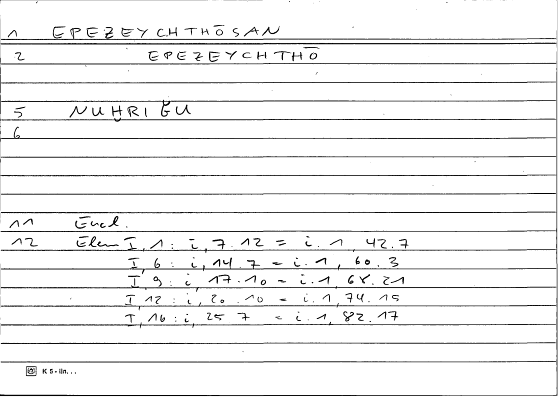 1 EPEZEYCHTHŌSAN
2 EPEZEYCHTHŌ
5 NUḤRIĞU
6
11 Eucl.
12 Elem I, 1 : i, 7.12 = i.1, 42.7
I, 6 : i, 14.7 = i.1, 60.3
I, 9 : i, 17.10 = i.1, 68.21
I, 12 : i, 20.10 = i.1, 74.15
I, 16 : i, 25 7 = i.1, 82.17
K 5 - lin. . .